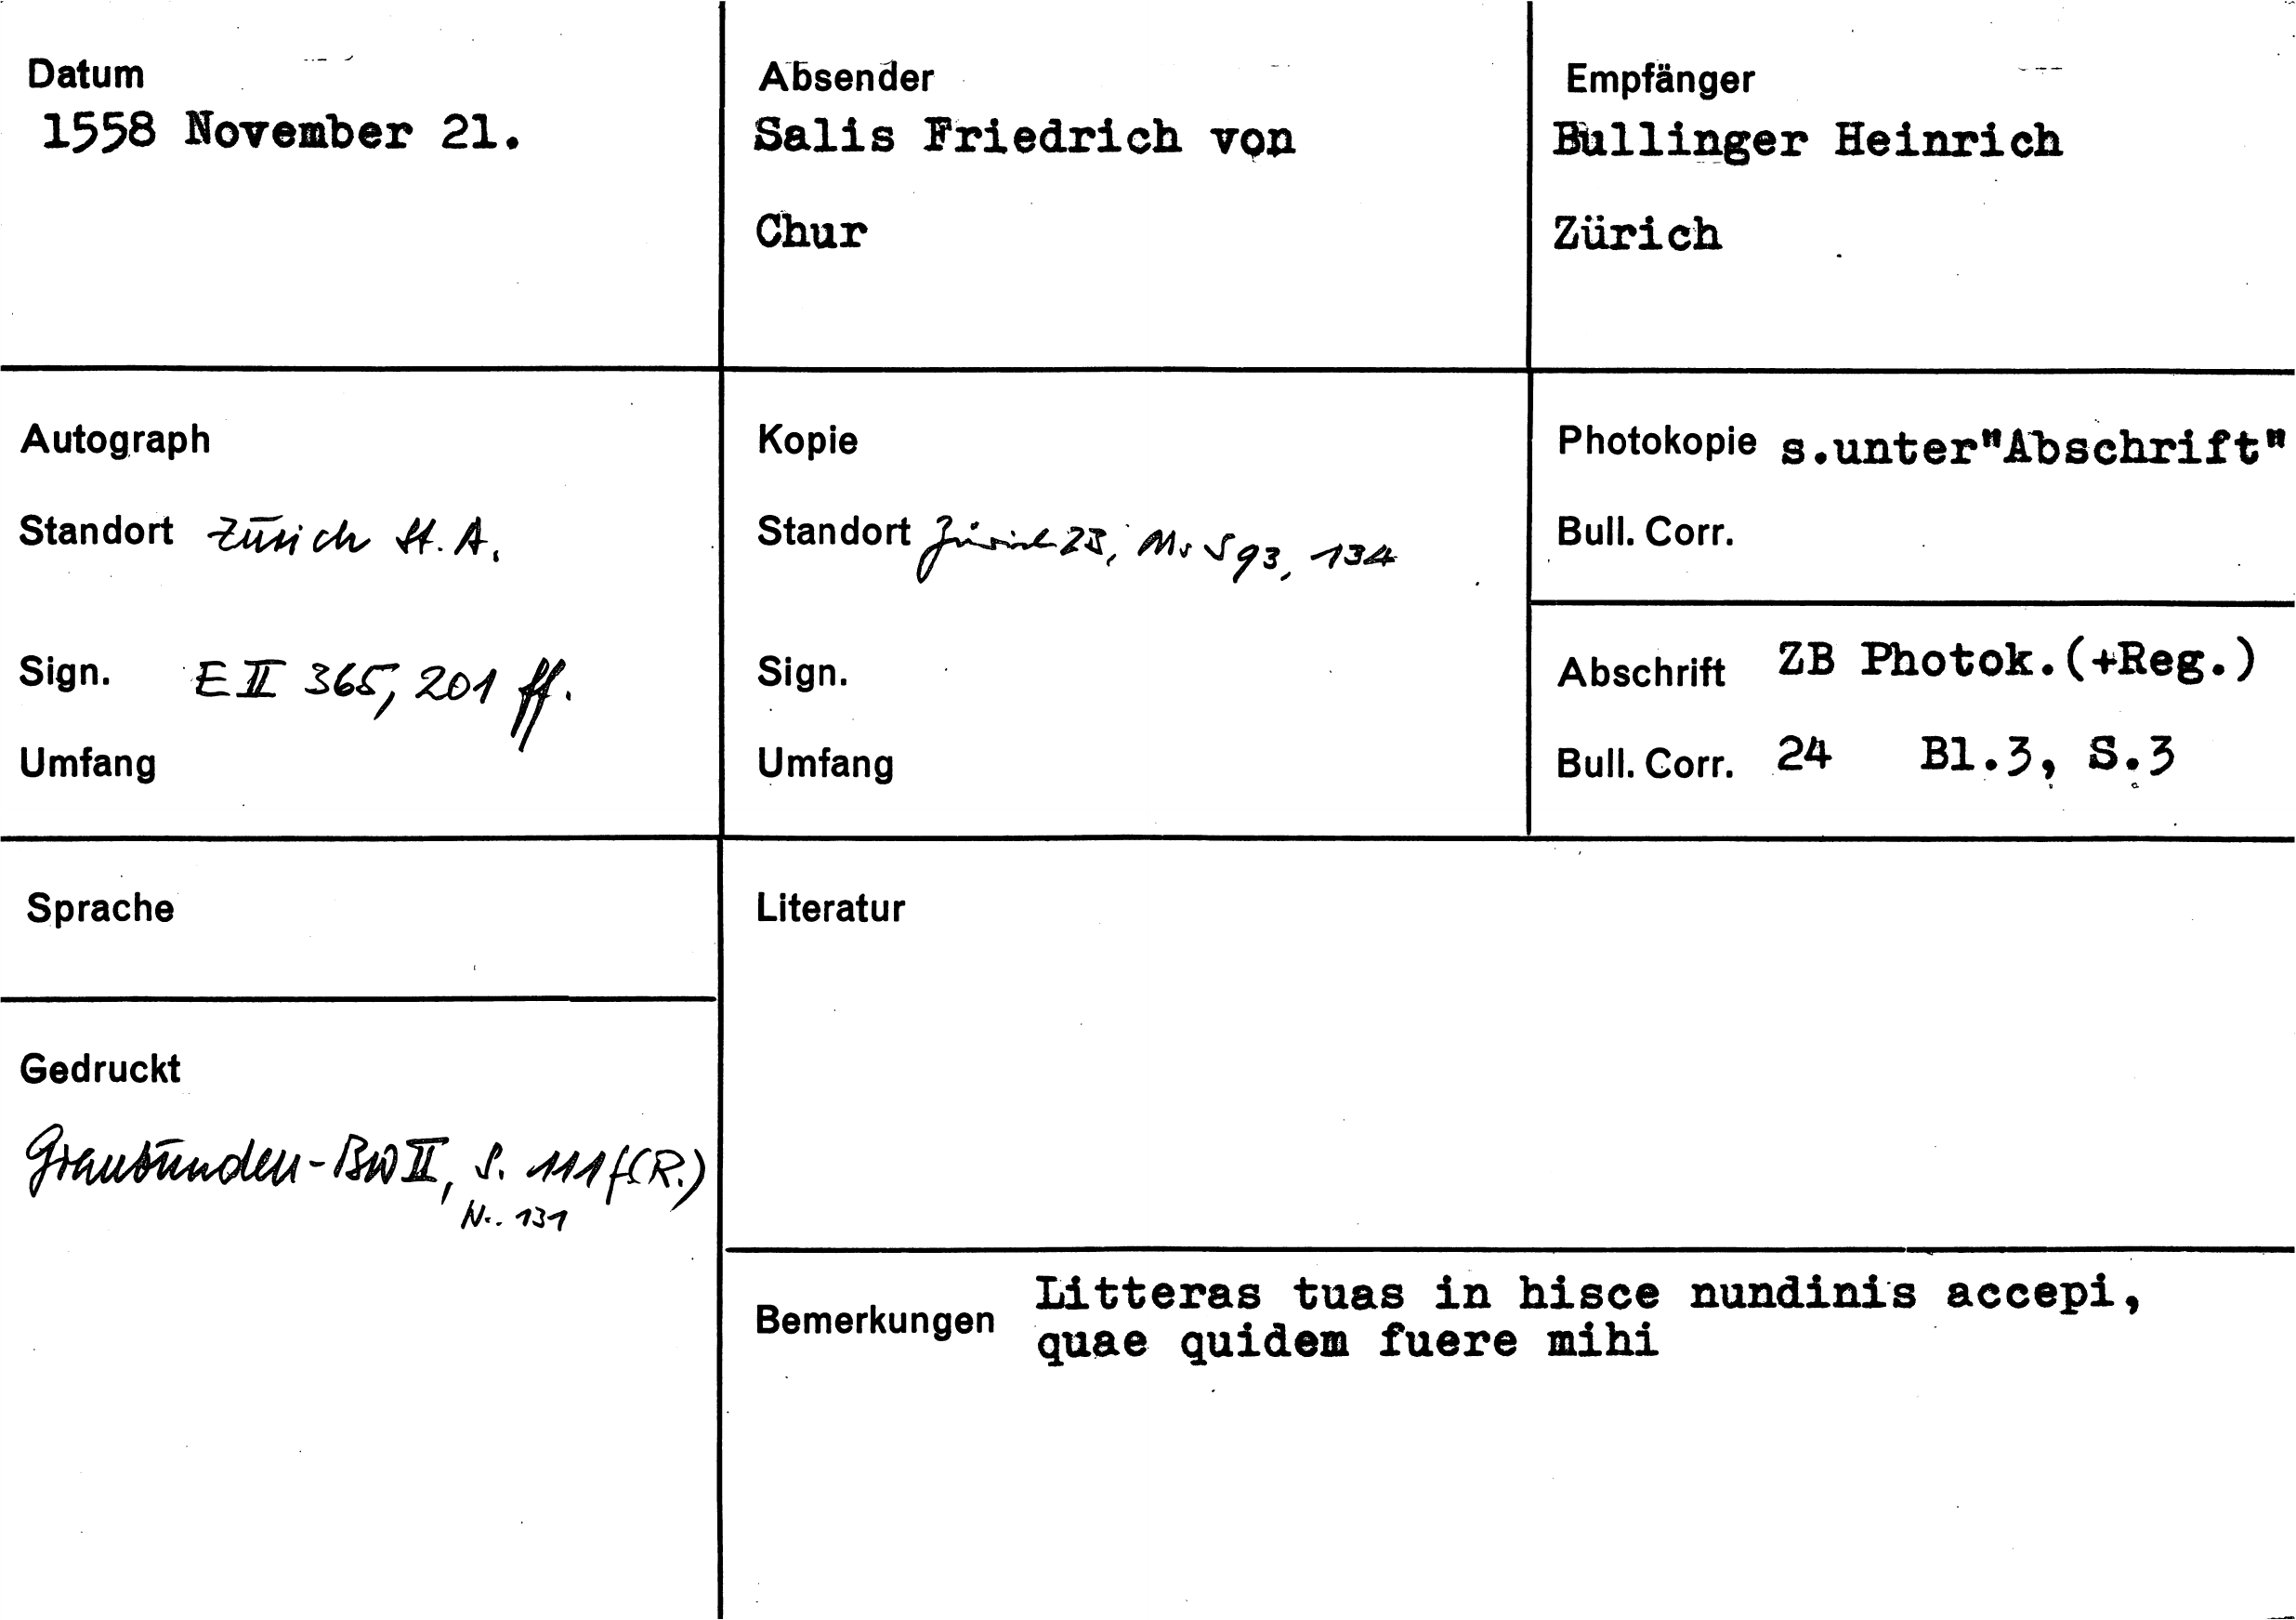 Datum
1558 November 21.
Absender
Salis Friedrich von
Chur
Empfänger
Bullinger Heinrich
Zürich
Autograph
Standort Zürich St.A.
Sign. E II 365, 201 ff.
Umfang
Kopie
Standort Zürich ZB, Ms S 93, 134
Sign.
Umfang
Photokopie s.unter"Abschrift"
Bull. Corr.
Abschrift ZB Photok.(+Reg.)
Bull. Corr. 24 Bl.3, S.3
Sprache
Gedruckt
Graubünden-BW II, S. 111f(R.)
Nr. 131
Literatur
Bemerkungen Litteras tuas in hisce nundinis accepi,
quae quidem fuere mihi